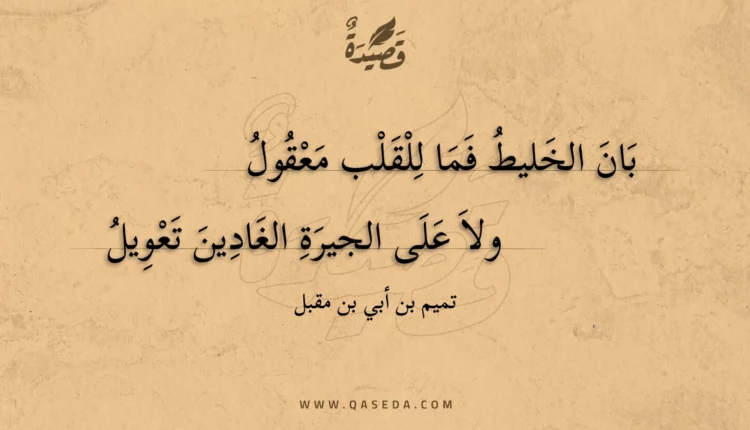 قَصِيْدَةٌ
بَانَ الخَليطُ فَمَا لِلْقَلْب مَعْقُولُ
ولاَ عَلَى الجيرَةِ الغَادِينَ تَعْوِيلُ
تميم بن أبي بن مقبل
WWW.QASEDA.COM